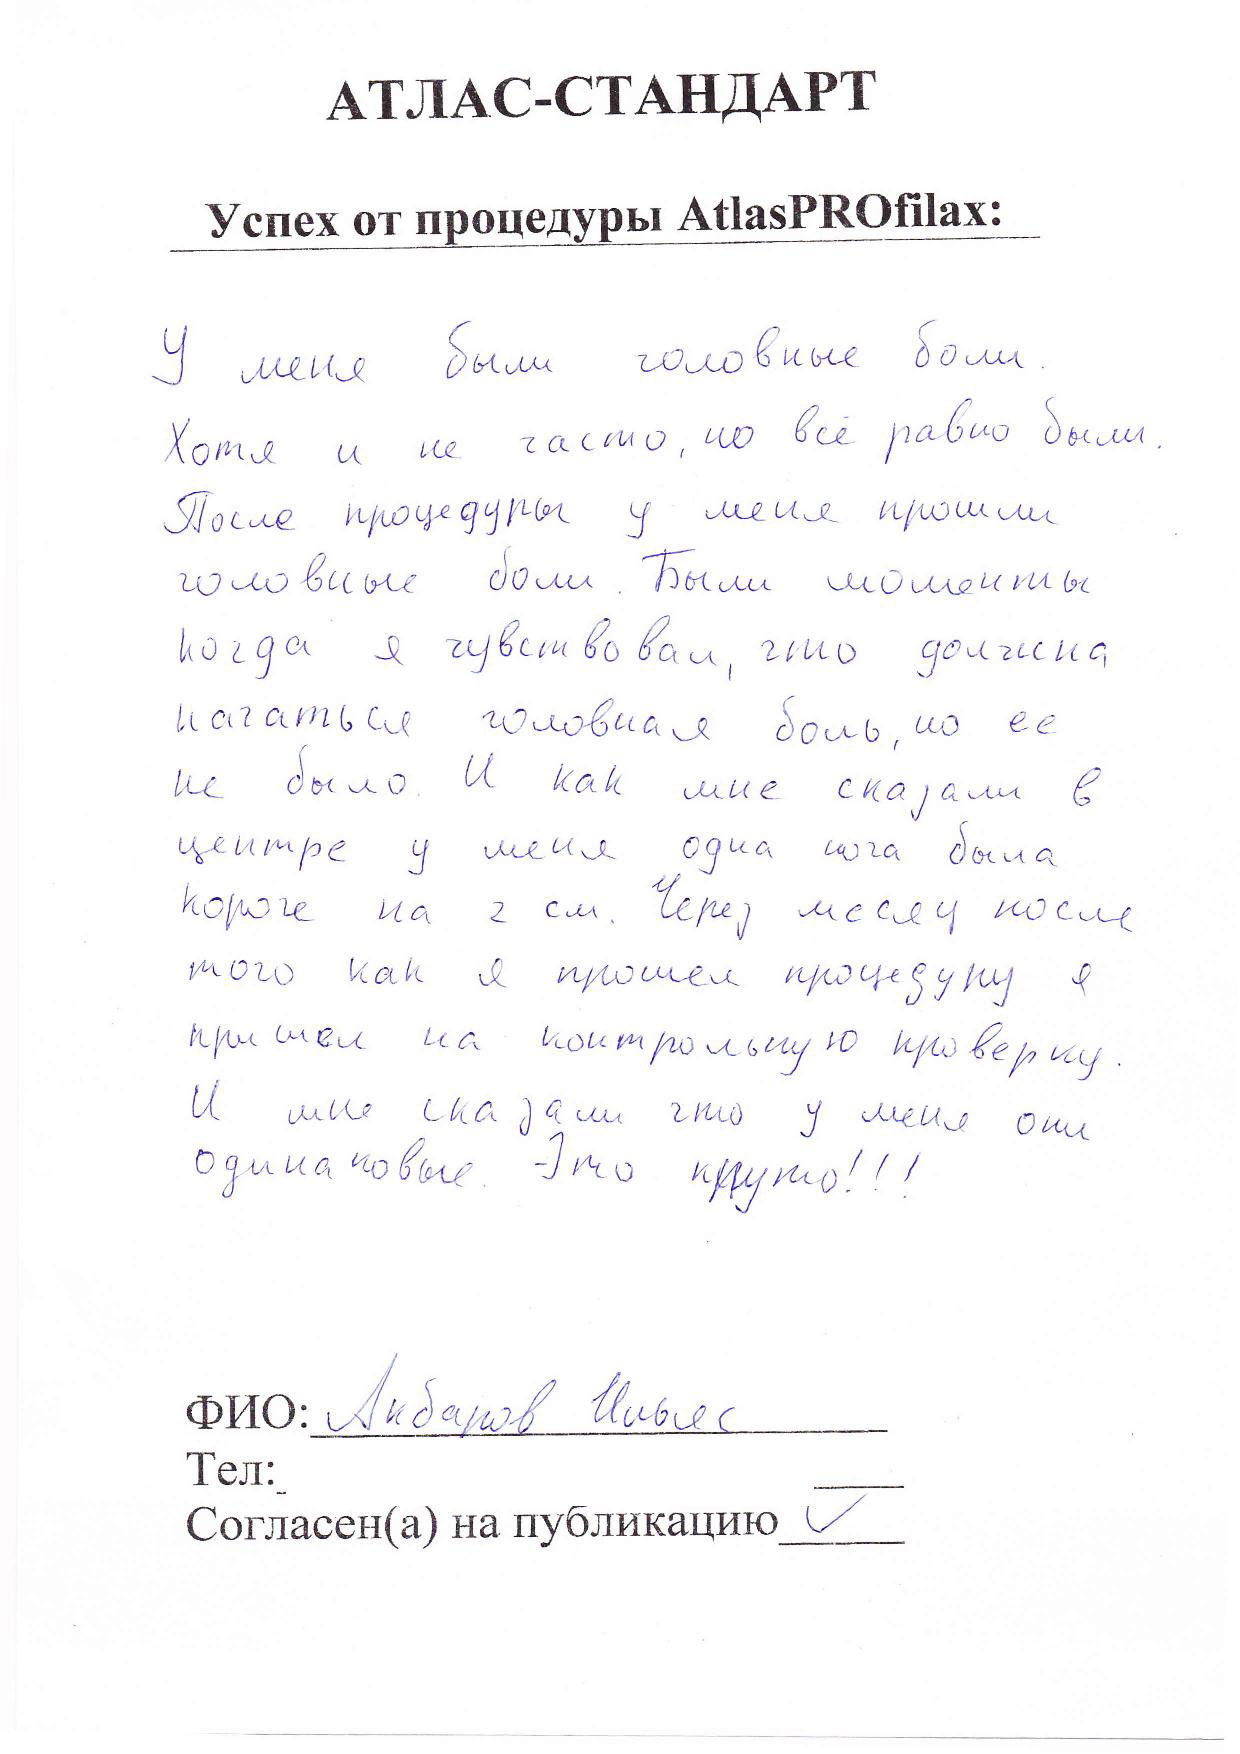 АТЛАС-СТАНДАРТ
Успех от процедуры AtlasPROfilax:
У меня были головные боли.
Хотя и не часто, но всё равно были.
После процедуры у меня прошли
головные боли. Были моменты
когда я чувствовал, что должна
начаться головная боль, но ее
не было. И как мне сказали в
центре у меня одна нога была
короче на 2 см. Через месяц после
того как я прошел процедуру я
пришел на контрольную проверку.
И мне сказали что у меня они
одинаковые. Это круто!!!
ФИО: Акбаров Ильяс
Тел:
Согласен(а) на публикацию ✓